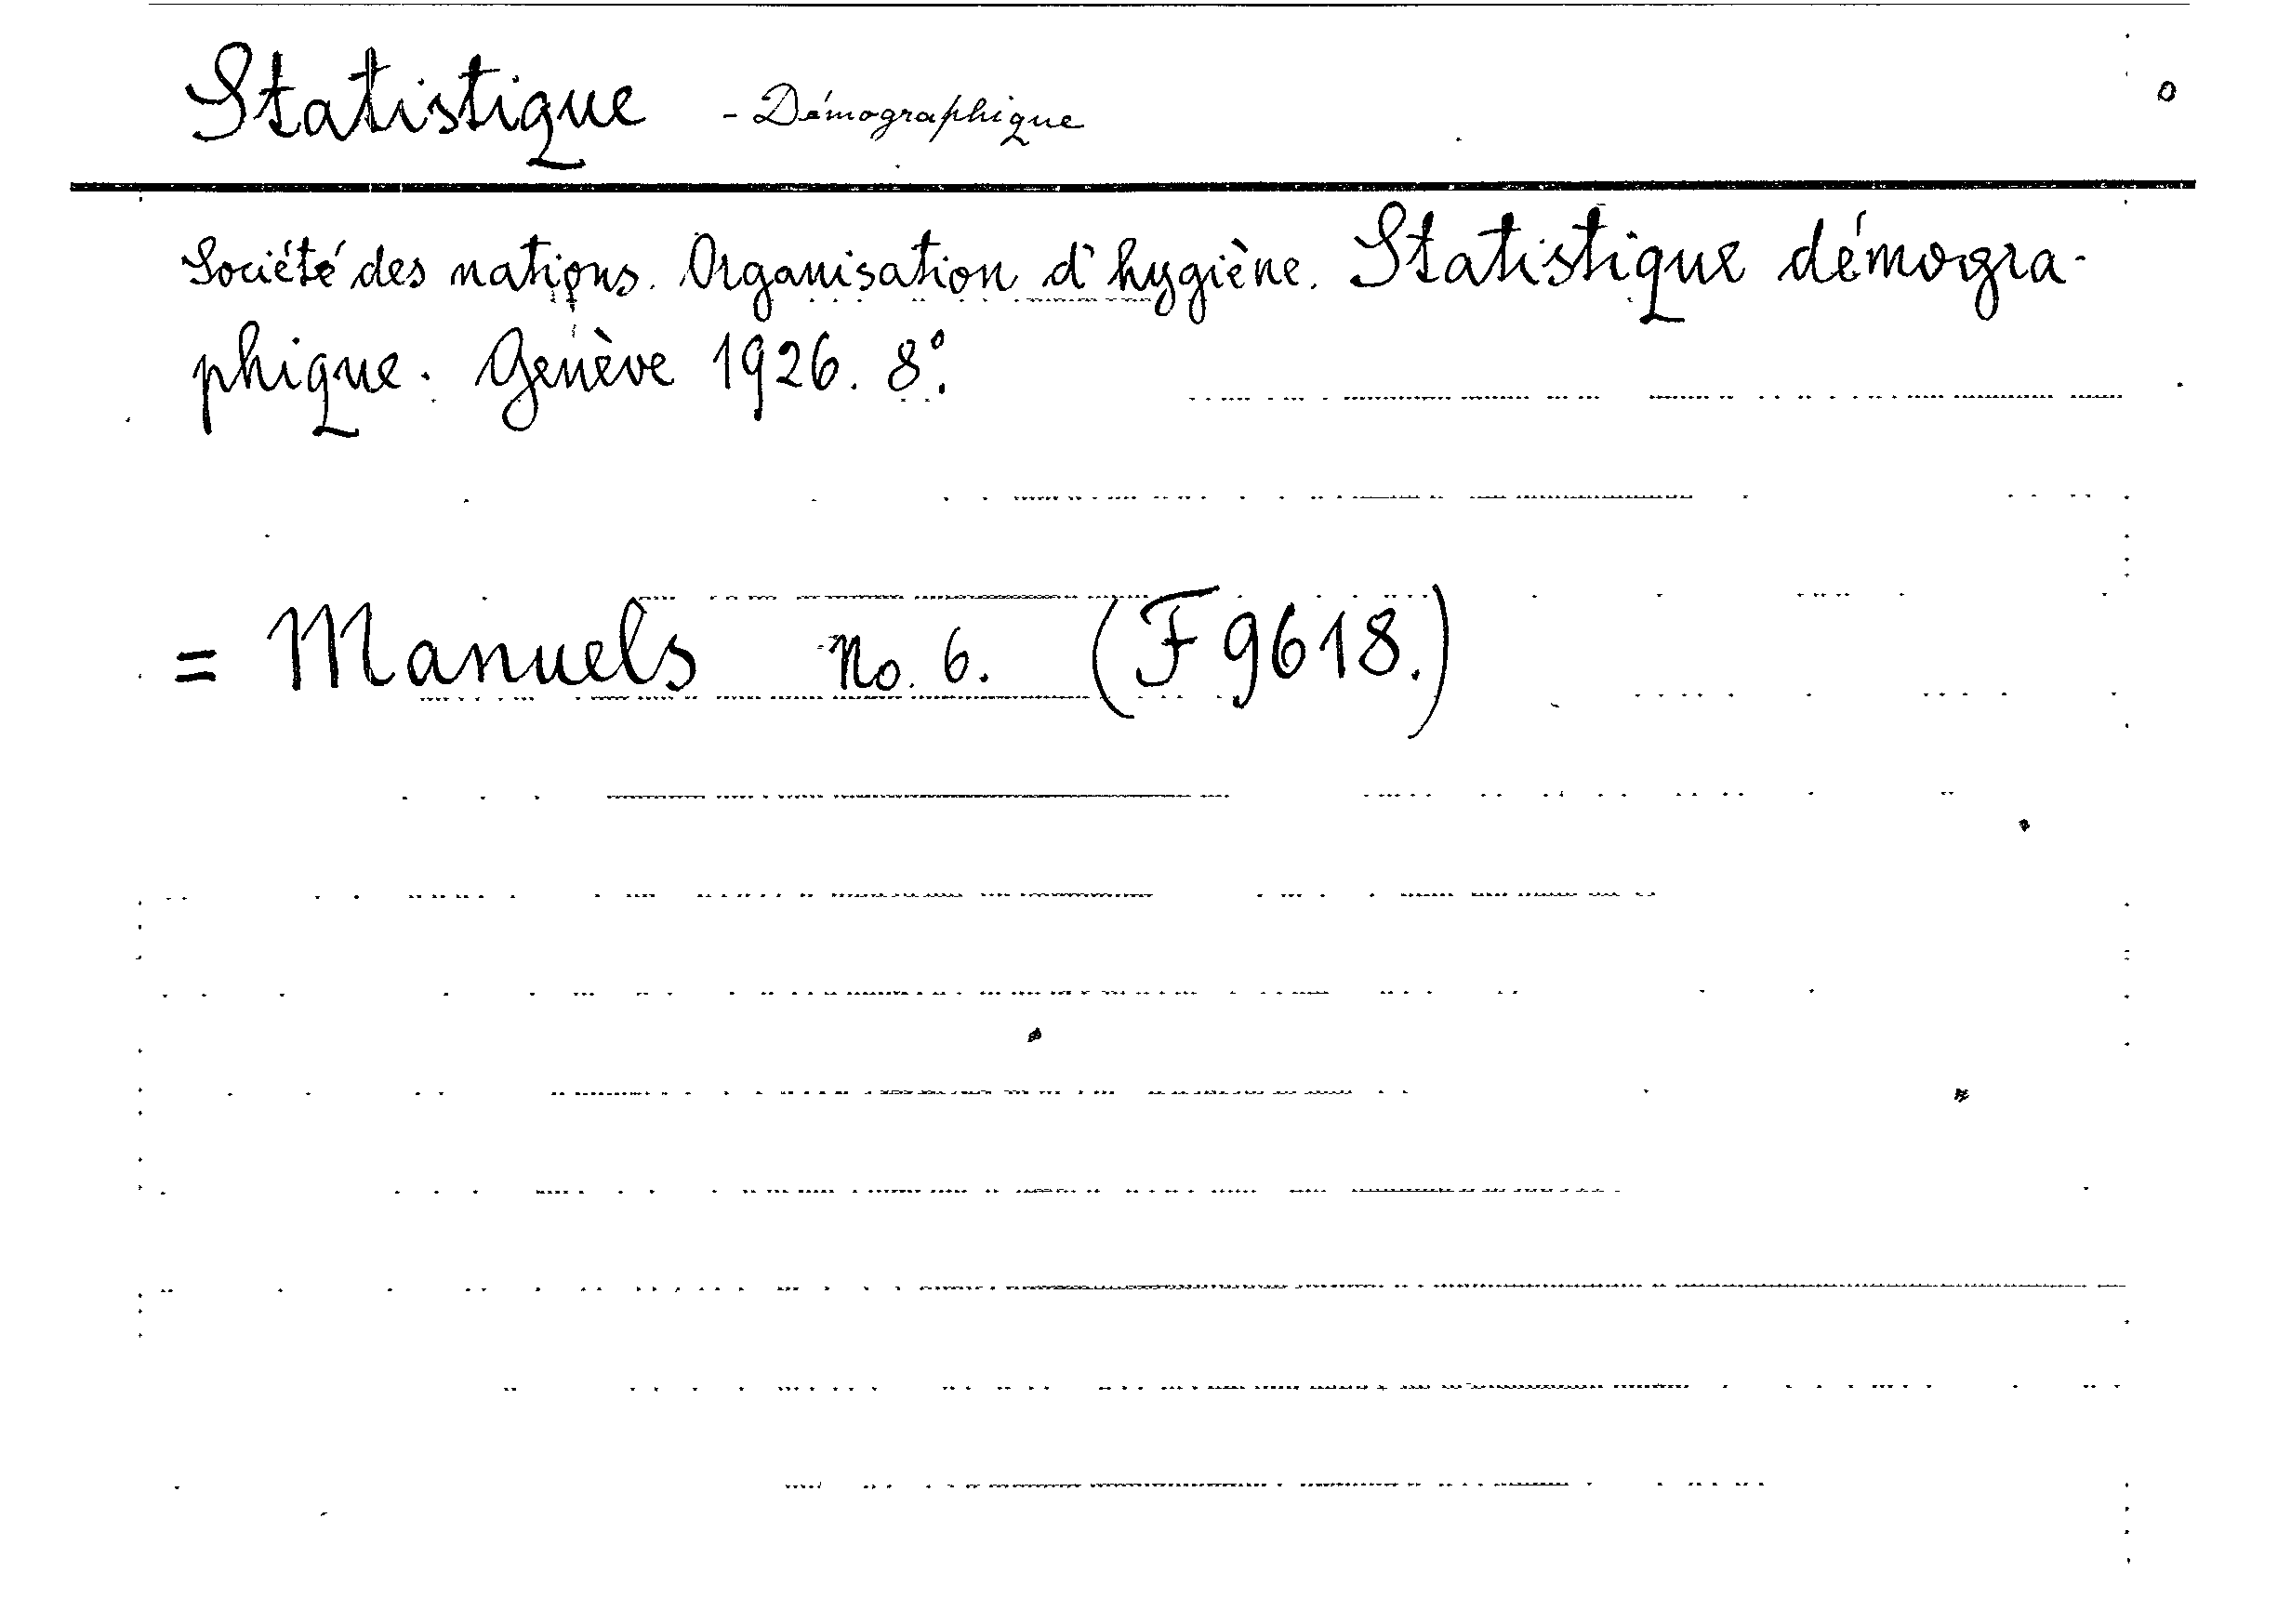 Statistique - Démographique o
Société des nations. Organisation d'hygiène. Statistique démogra-
phique. Genève 1926. 8°.
= Manuels No. 6. (F 9618.)